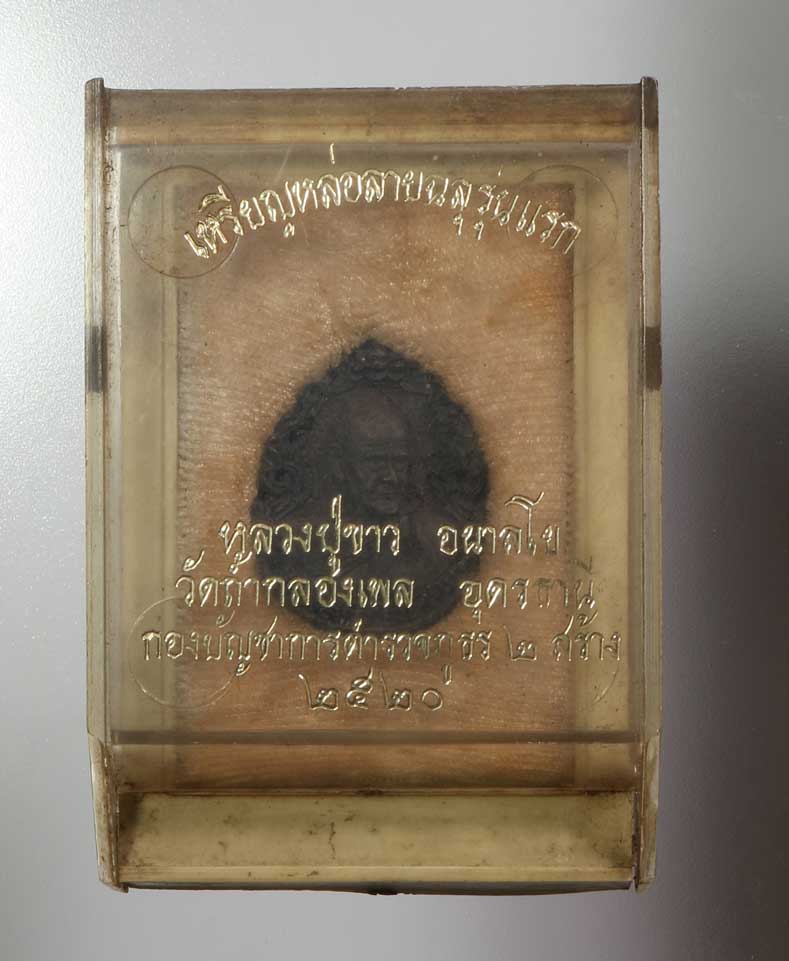 เหรียญหล่อลายฉลุรุ่นแรก
หลวงปู่ขาว อนาลโย
วัดถ้ำกลองเพล อุดรธานี
กองบัญชาการตำรวจภูธร ๒ สร้าง
๒๕๒๐